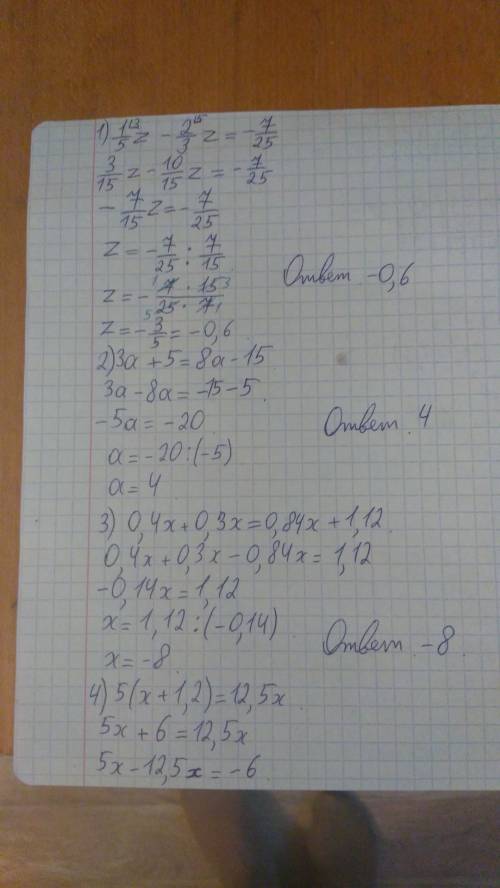 1) 1/5 z - 2/3 z = - 7/25
3/15 z - 10/15 z = - 7/25
- 7/15 z = - 7/25
z = - 7/25 : 7/15
z = - 7 · 15 / 25 · 7
Ответ -0,6
z = - 3/5 = -0,6
2) 3a + 5 = 8a - 15
3a - 8a = -15 - 5
-5a = -20
Ответ. 4
a = -20 : (-5)
a = 4
3) 0,4x + 0,3x = 0,84x + 1,12
0,4x + 0,3x - 0,84x = 1,12
-0,14x = 1,12
x = 1,12 : (-0,14)
Ответ -8
x = -8
4) 5(x + 1,2) = 12,5x
5x + 6 = 12,5x
5x - 12,5x = -6